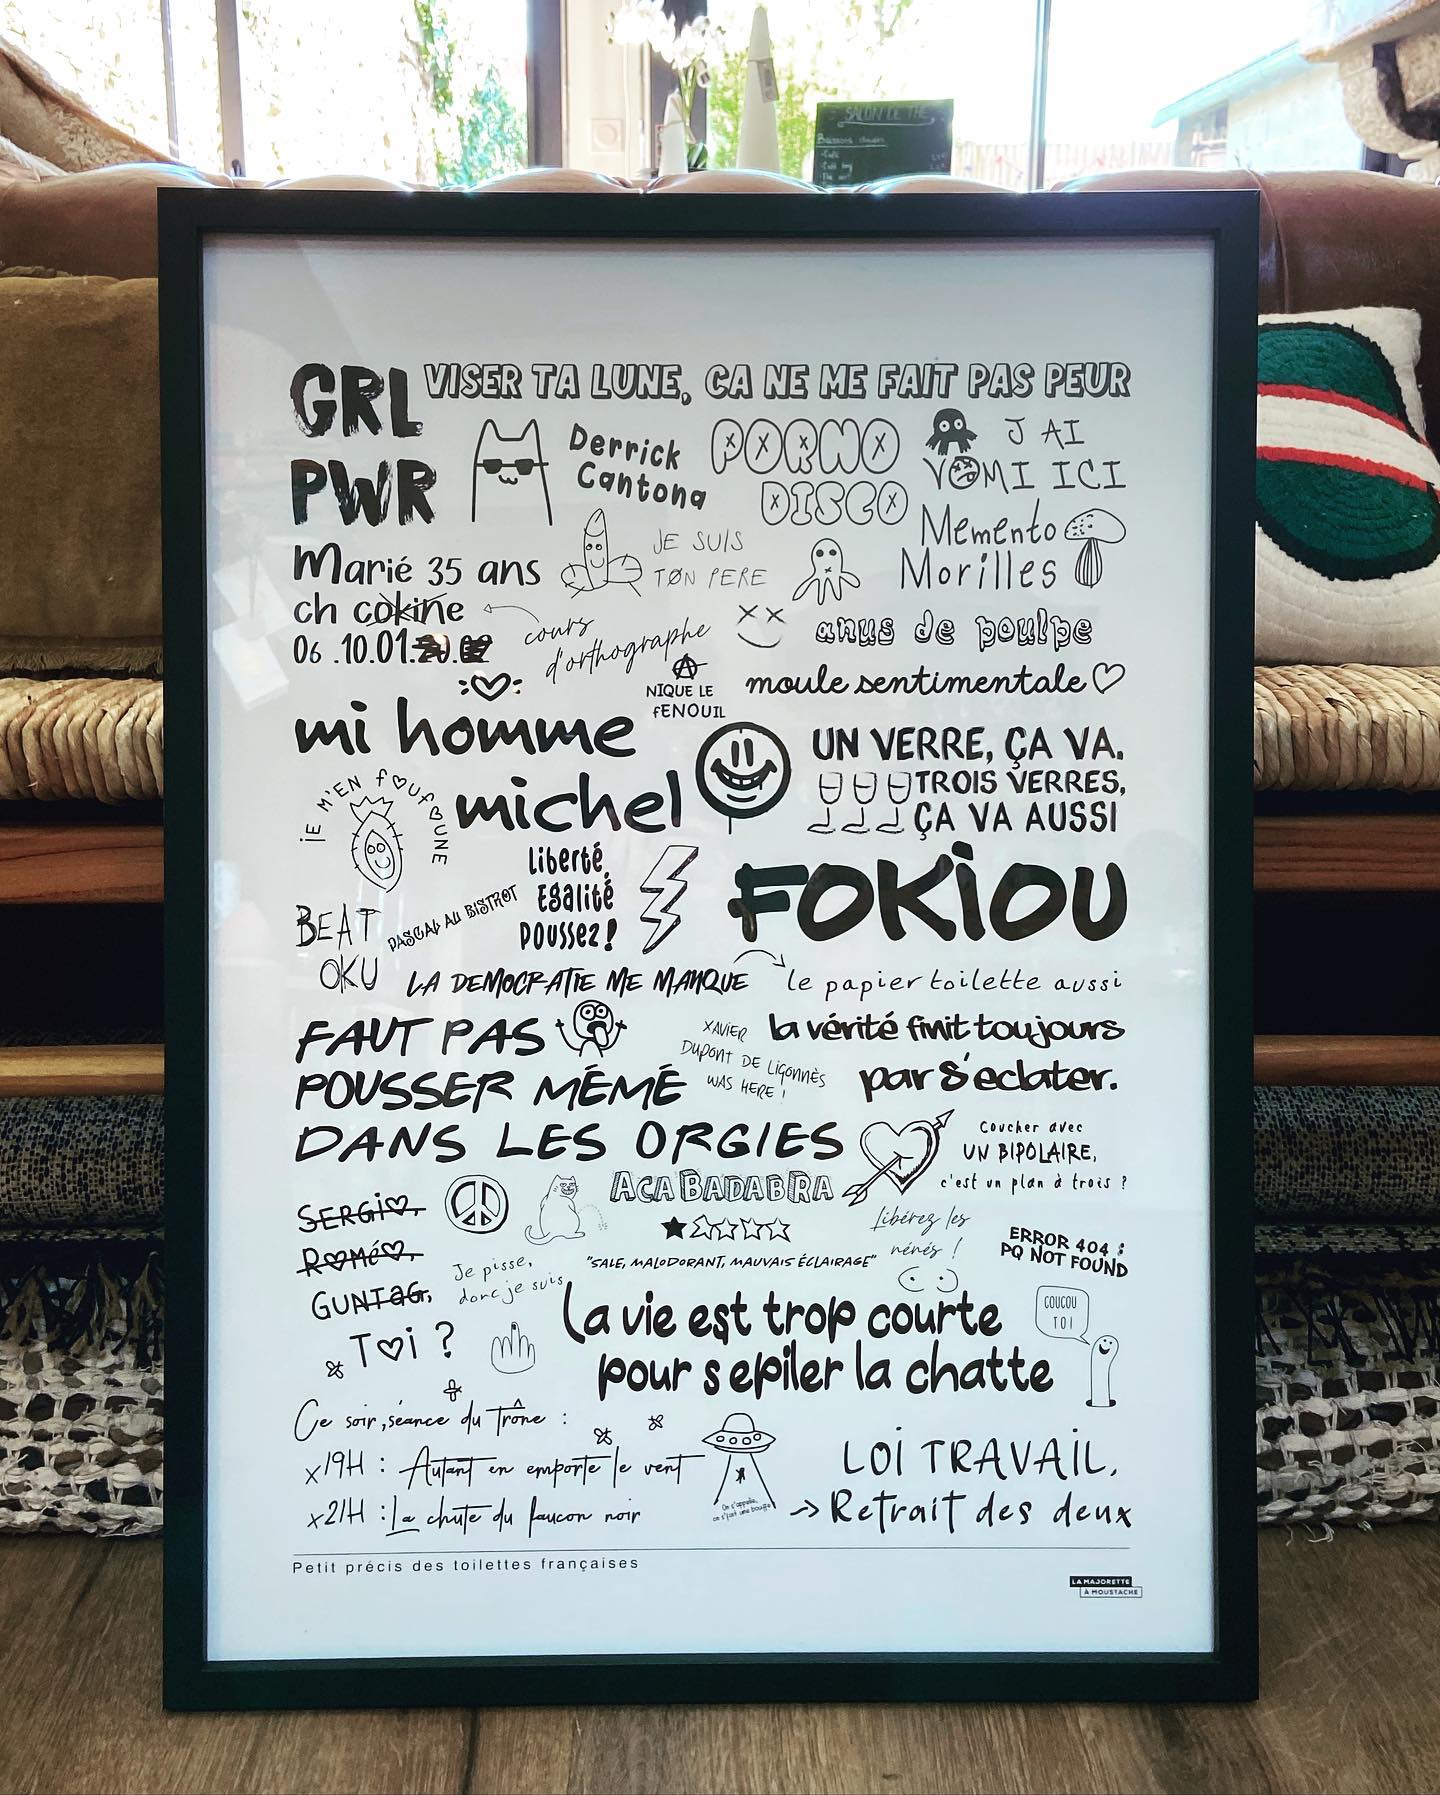 SALON DE THÉ
Boissons chaudes
GRL
PWR
VISER TA LUNE, ÇA NE ME FAIT PAS PEUR
Derrick
Cantona
PORNO
DISCO
J'AI
VOMI ICI
Memento
Morilles
Marié 35 ans
ch cokine
06.10.01.
cours
d'orthographe
JE SUIS
TØN PERE
anus de poulpe
NIQUE LE
fENOUIL
moule sentimentale
mi homme
michel
UN VERRE, ÇA VA.
TROIS VERRES,
ÇA VA AUSSI
JE M'EN FOUFOUNE
Liberté,
Egalité
Poussez!
FOKIOU
BEAT
OKU
PASCAL AU BISTROT
LA DEMOCRATIE ME MANQUE
le papier toilette aussi
FAUT PAS
POUSSER MÉMÉ
DANS LES ORGIES
XAVIER
DUPONT DE LIGONNÈS
WAS HERE !
la vérité finit toujours
par s'eclater.
Coucher avec
UN BIPOLAIRE,
c'est un plan à trois ?
ACABADABRA
"SALE, MALODORANT, MAUVAIS ÉCLAIRAGE"
SERGIO,
ROMéO,
GUNTAG,
TOi ?
Je pisse,
donc je suis
Libérez les
nénés !
ERROR 404 :
PQ NOT FOUND
La vie est trop courte
pour s epiler la chatte
COUCOU
TOI
Ce soir, séance du trône :
x19H : Autant en emporte le vent
x21H : La chute du faucon noir
On s'appelle,
on s'fait une bouffe
LOI TRAVAIL,
-> Retrait des deux
Petit précis des toilettes françaises
LA MAJORETTE
À MOUSTACHE